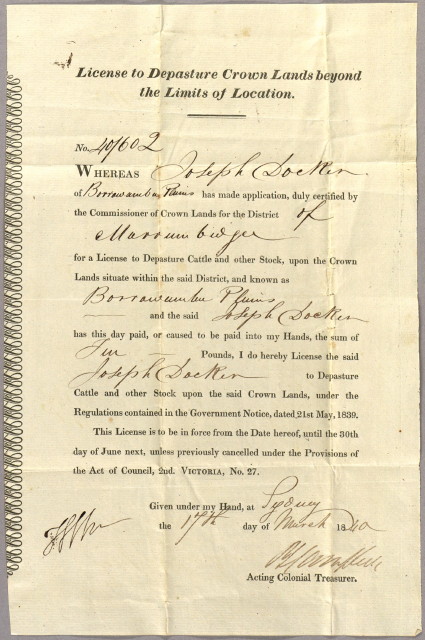 License to Depasture Crown Lands beyond
the Limits of Location.
No. 40/602
WHEREAS Joseph Docker
of Borrowambu Plains has made application, duly certified by
the Commissioner of Crown Lands for the District of
Murrumbidgee
for a License to Depasture Cattle and other Stock, upon the Crown
Lands situate within the said District, and known as
Borrowambu Plains
and the said Joseph Docker
has this day paid, or caused to be paid into my Hands, the sum of
Ten Pounds, I do hereby License the said
Joseph Docker to Depasture
Cattle and other Stock upon the said Crown Lands, under the
Regulations contained in the Government Notice, dated, 21st May, 1839.
This License is to be in force from the Date hereof, until the 30th
day of June next, unless previously cancelled under the Provisions of
the Act of Council, 2nd. VICTORIA, No. 27.
Given under my Hand, at Sydney
the 17th day of March 1840
Acting Colonial Treasurer.